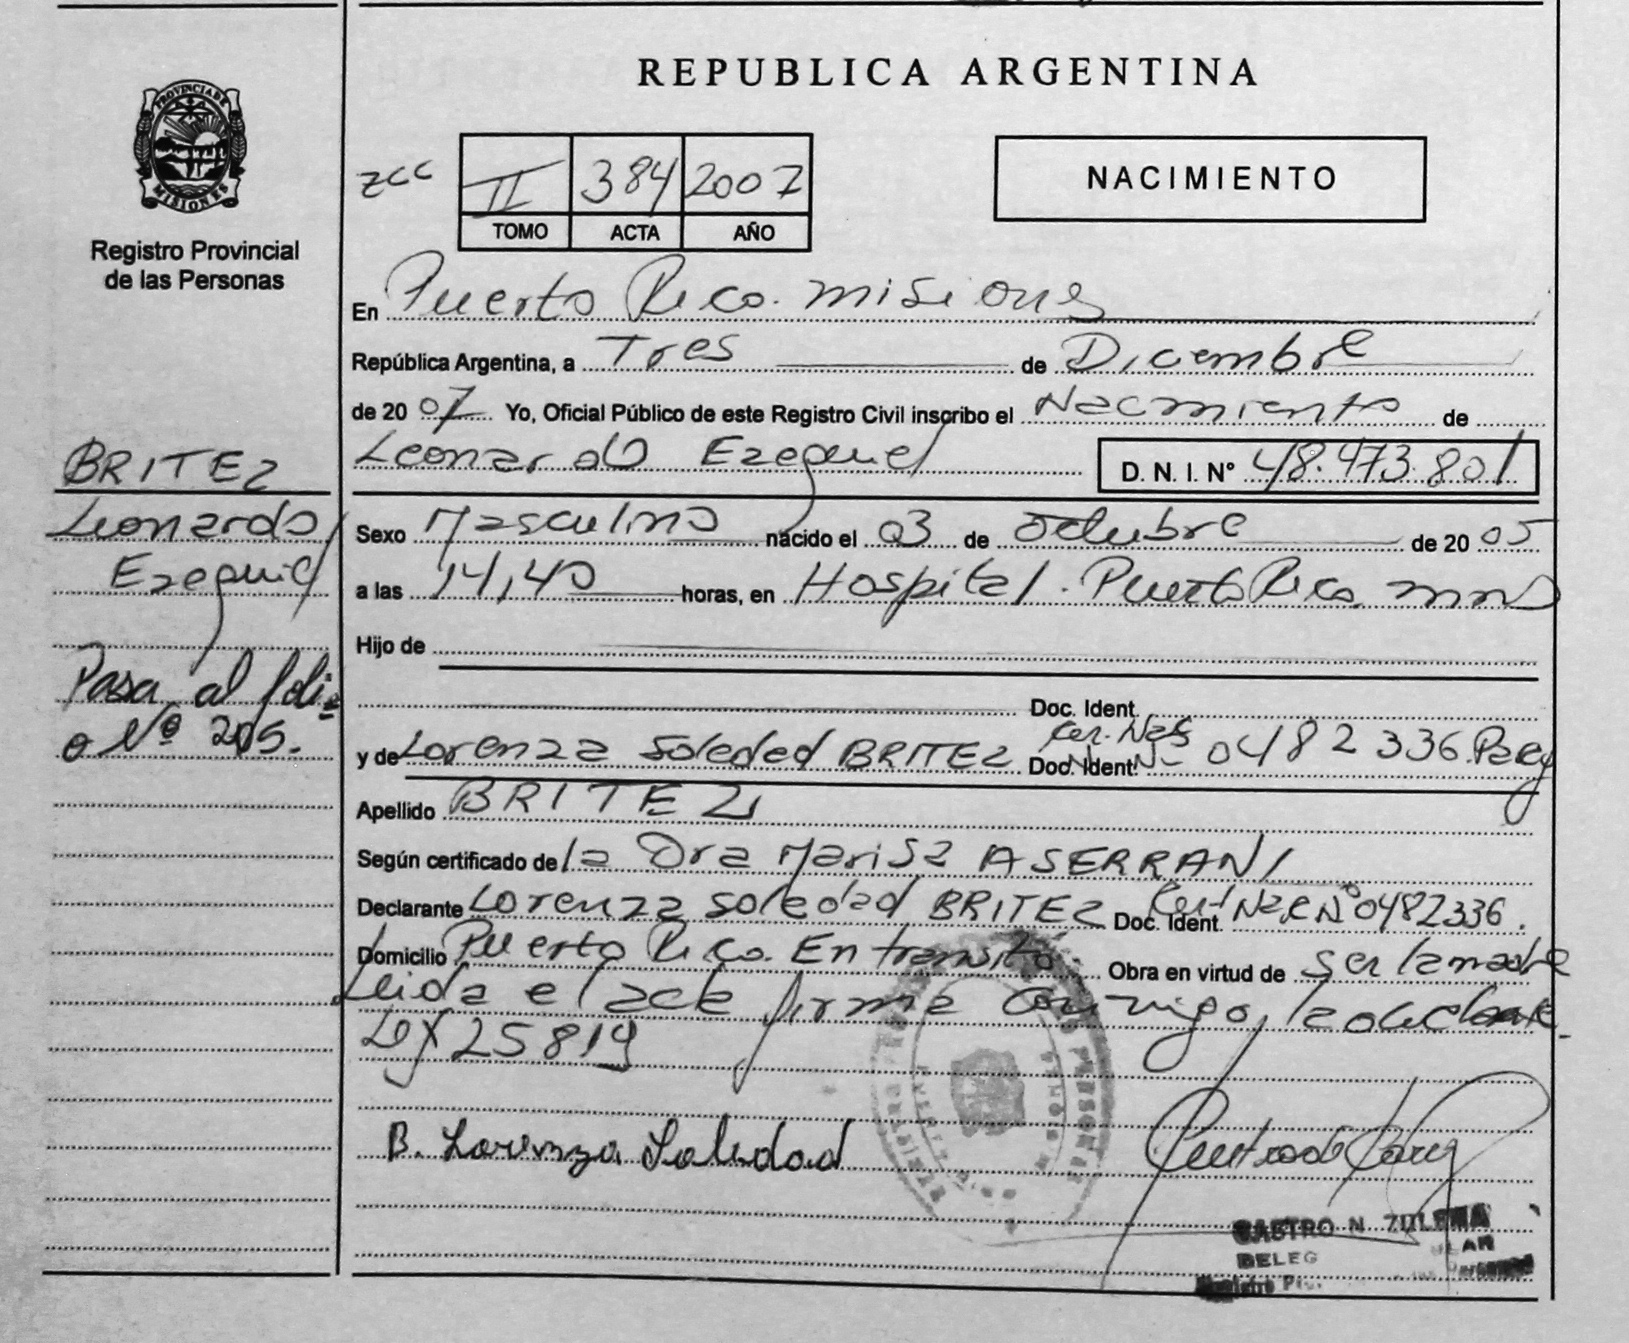 REPUBLICA ARGENTINA
PROVINCIA DE
MISIONES
Registro Provincial
de las Personas
zcc II 384 2007
TOMO ACTA AÑO
NACIMIENTO
En Puerto Rico. misiones
República Argentina, a Tres de Diciembre
de 2007 Yo, Oficial Público de este Registro Civil inscribo el Nacimiento de
Leonardo Ezequiel D. N. I. Nº 48.473.801
BRITEZ
Leonardo
Ezequiel
Pasa al foli-
o Nº 205.
Sexo Masculino nacido el 03 de Octubre de 2005
a las 14,40 horas, en Hospital. Puerto Rico. mns
Hijo de
Doc. Ident.
y de Lorenza Soledad BRITEZ Doc. Ident. Cer. Nac Nº 0482336. Parg
Apellido BRITEZ
Según certificado de la Dra Marisa ASERRANI
Declarante Lorenza Soledad BRITEZ Doc. Ident. Cert Nac Nº 0482336.
Domicilio Puerto Rico. En transito Obra en virtud de ser la madre
Leida el acta firma conmigo, la declarante.
Ley 25819
B. Lorenza Soledad
CASTRO N. ZULEMA
DELEG
Registro